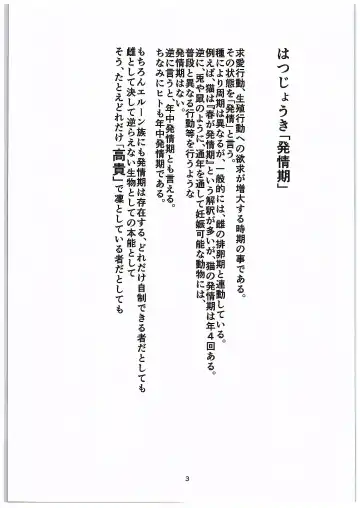 はつじょうき「発情期」
求愛行動、生殖行動への欲求が増大する時期の事である。
その状態を「発情」と言う。
種により周期は異なるが、一般的には、雌の排卵期と連動している。
例えば、猫は『春が発情期』という解釈が多いが、猫の発情期は年4回ある。
逆に、兎や鼠のように、通年を通して妊娠可能な動物には、
普段と異なる行動等を行うような
発情期はない。
逆に言うと、年中発情期とも言える。
ちなみにヒトも年中発情期である。
もちろんエルーン族にも発情期は存在する、どれだけ自制できる者だとしても
雌として決して逆らえない生物としての本能として
そう、たとえどれだけ「高貴」で凜としている者だとしても
3